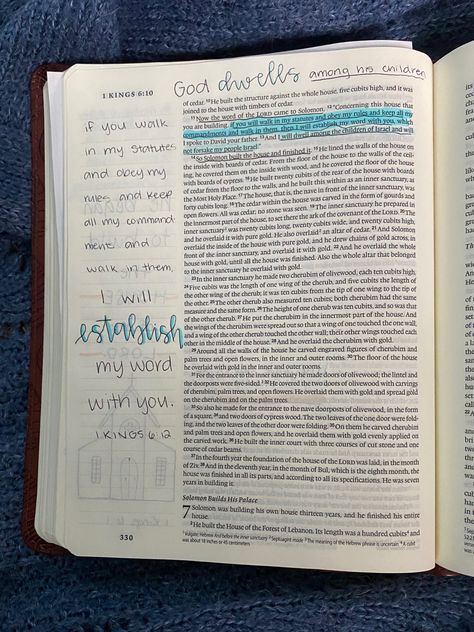 1 KINGS 6:10
God dwells among his children
if you walk
in my statutes
and obey my
rules and keep
all my command
ments and
walk in them,
I will
establish
my word
with you.
1 KINGS 6:12
330
of cedar. 10 He built the structure against the whole house, five cubits high, and it was
joined to the house with timbers of cedar.
11 Now the word of the LORD came to Solomon, 12 "Concerning this house that
you are building, if you will walk in my statutes and obey my rules and keep all my
commandments and walk in them, then I will establish my word with you, which
I spoke to David your father. 13 And I will dwell among the children of Israel and will
not forsake my people Israel."
14 So Solomon built the house and finished it. 15 He lined the walls of the house on
the inside with boards of cedar. From the floor of the house to the walls of the ceil-
ing, he covered them on the inside with wood, and he covered the floor of the house
with boards of cypress. 16 He built twenty cubits of the rear of the house with boards
of cedar from the floor to the walls, and he built this within as an inner sanctuary, as
the Most Holy Place. 17 The house, that is, the nave in front of the inner sanctuary, was
forty cubits long. 18 The cedar within the house was carved in the form of gourds and
open flowers. All was cedar; no stone was seen. 19 The inner sanctuary he prepared in
the innermost part of the house, to set there the ark of the covenant of the LORD. 20 The
inner sanctuary was twenty cubits long, twenty cubits wide, and twenty cubits high,
and he overlaid it with pure gold. He also overlaid an altar of cedar. 21 And Solomon
overlaid the inside of the house with pure gold, and he drew chains of gold across, in
front of the inner sanctuary, and overlaid it with gold. 22 And he overlaid the whole
house with gold, until all the house was finished. Also the whole altar that belonged
to the inner sanctuary he overlaid with gold.
23 In the inner sanctuary he made two cherubim of olivewood, each ten cubits high.
24 Five cubits was the length of one wing of the cherub, and five cubits the length of
the other wing of the cherub; it was ten cubits from the tip of one wing to the tip of
the other. 25 The other cherub also measured ten cubits; both cherubim had the same
measure and the same form. 26 The height of one cherub was ten cubits, and so was that
of the other cherub. 27 He put the cherubim in the innermost part of the house. And
the wings of the cherubim were spread out so that a wing of one touched the one wall,
and a wing of the other cherub touched the other wall; their other wings touched each
other in the middle of the house. 28 And he overlaid the cherubim with gold.
29 Around all the walls of the house he carved engraved figures of cherubim and
palm trees and open flowers, in the inner and outer rooms. 30 The floor of the house
he overlaid with gold in the inner and outer rooms.
31 For the entrance to the inner sanctuary he made doors of olivewood; the lintel and
the doorposts were five-sided. 32 He covered the two doors of olivewood with carvings
of cherubim, palm trees, and open flowers. He overlaid them with gold and spread gold
on the cherubim and on the palm trees.
33 So also he made for the entrance to the nave doorposts of olivewood, in the form of
a square, 34 and two doors of cypress wood. The two leaves of the one door were fold-
ing, and the two leaves of the other door were folding. 35 On them he carved cherubim
and palm trees and open flowers, and he overlaid them with gold evenly applied on
the carved work. 36 He built the inner court with three courses of cut stone and one
course of cedar beams.
37 In the fourth year the foundation of the house of the LORD was laid, in the month
of Ziv. 38 And in the eleventh year, in the month of Bul, which is the eighth month, the
house was finished in all its parts, and according to all its specifications. He was seven
years in building it.
Solomon Builds His Palace
7 Solomon was building his own house thirteen years, and he finished his entire
house.
2 He built the House of the Forest of Lebanon. Its length was a hundred cubits and